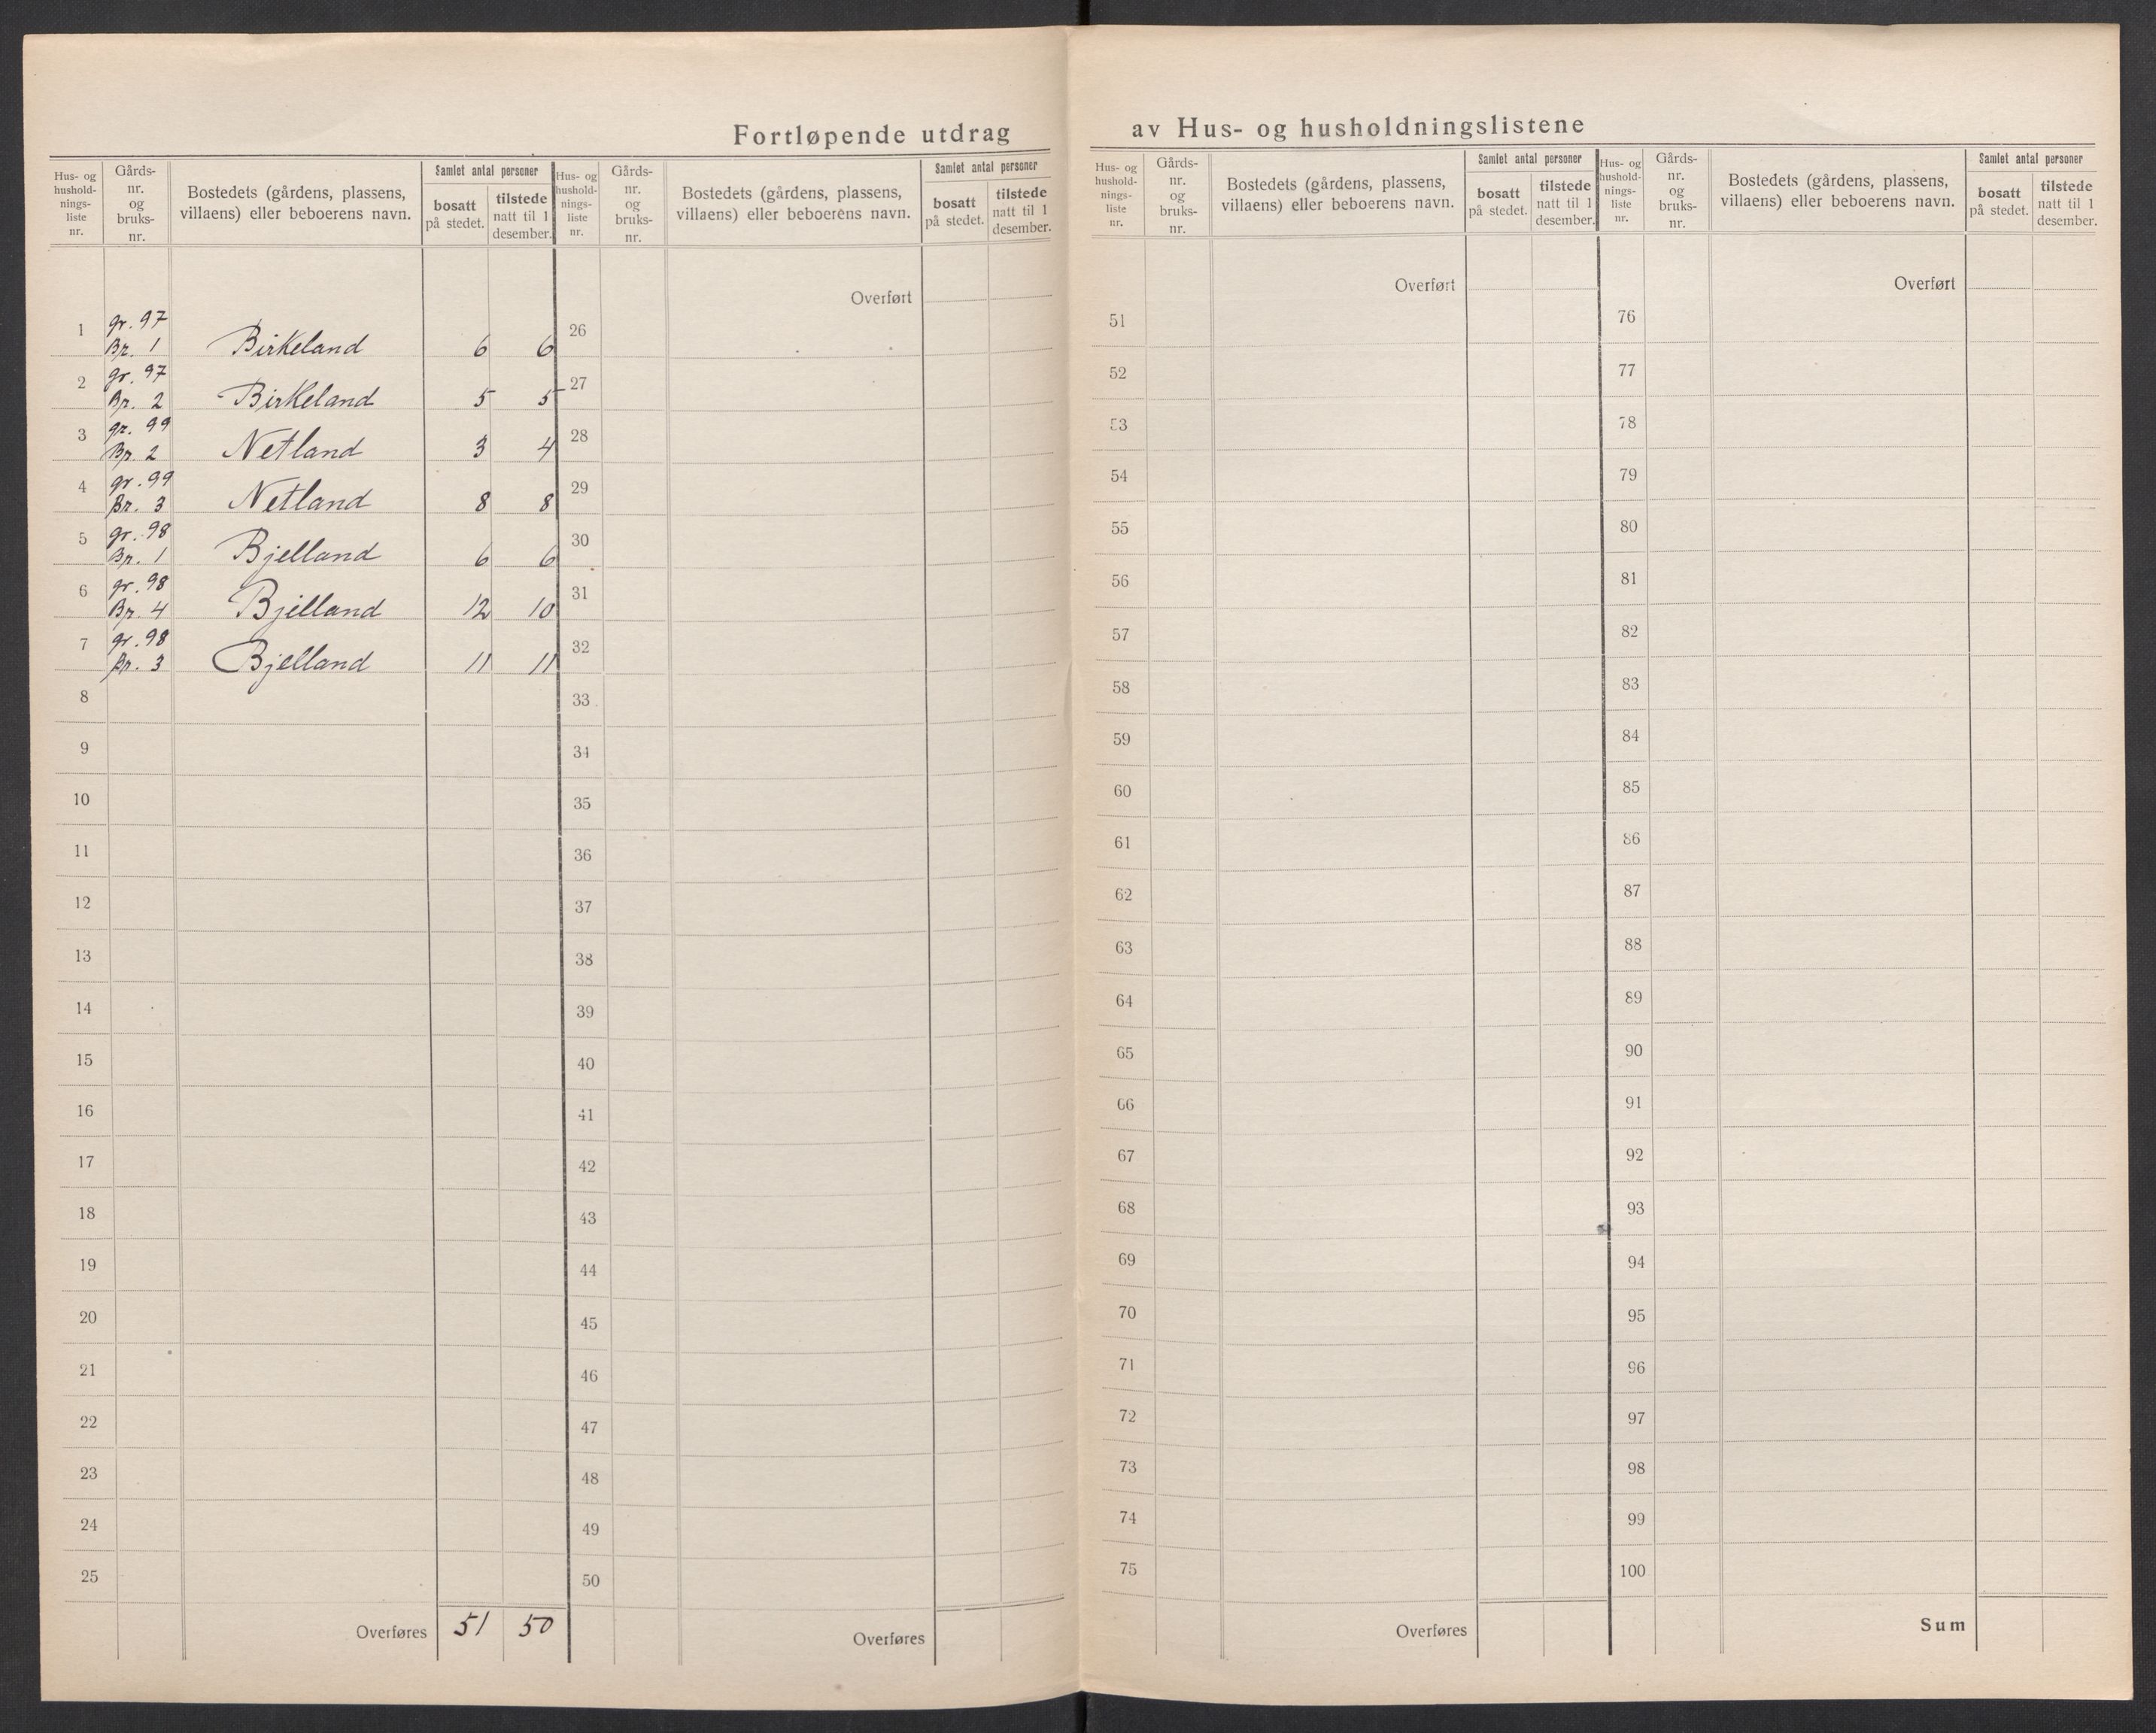 Fortløpende utdrag av Hus- og husholdningslistene
Hus- og hushold-nings-liste nr. Gårds-nr. og bruks-nr. Bostedets (gårdens, plassens, villaens) eller beboerens navn. Samlet antal personer bosatt på stedet. tilstede natt til 1 desember.
1 gr. 97 Br. 1 Birkeland 6 6
2 gr. 97 Br. 2 Birkeland 5 5
3 gr. 99 Br. 2 Netland 3 4
4 gr. 99 Br. 3 Netland 8 8
5 gr. 98 Br. 1 Bjelland 6 6
6 gr. 98 Br. 4 Bjelland 12 10
7 gr. 98 Br. 3 Bjelland 11 11
8
9
10
11
12
13
14
15
16
17
18
19
20
21
22
23
24
25
Overføres 51 50
Hus- og hushold-nings-liste nr. Gårds-nr. og bruks-nr. Bostedets (gårdens, plassens, villaens) eller beboerens navn. Samlet antal personer bosatt på stedet. tilstede natt til 1 desember.
Overført
26
27
28
29
30
31
32
33
34
35
36
37
38
39
40
41
42
43
44
45
46
47
48
49
50
Overføres
Hus- og hushold-nings-liste nr. Gårds-nr. og bruks-nr. Bostedets (gårdens, plassens, villaens) eller beboerens navn. Samlet antal personer bosatt på stedet. tilstede natt til 1 desember.
Overført
51
52
53
54
55
56
57
58
59
60
61
62
63
64
65
66
67
68
69
70
71
72
73
74
75
Overføres
Hus- og hushold-nings-liste nr. Gårds-nr. og bruks-nr. Bostedets (gårdens, plassens, villaens) eller beboerens navn. Samlet antal personer bosatt på stedet. tilstede natt til 1 desember.
Overført
76
77
78
79
80
81
82
83
84
85
86
87
88
89
90
91
92
93
94
95
96
97
98
99
100
Sum